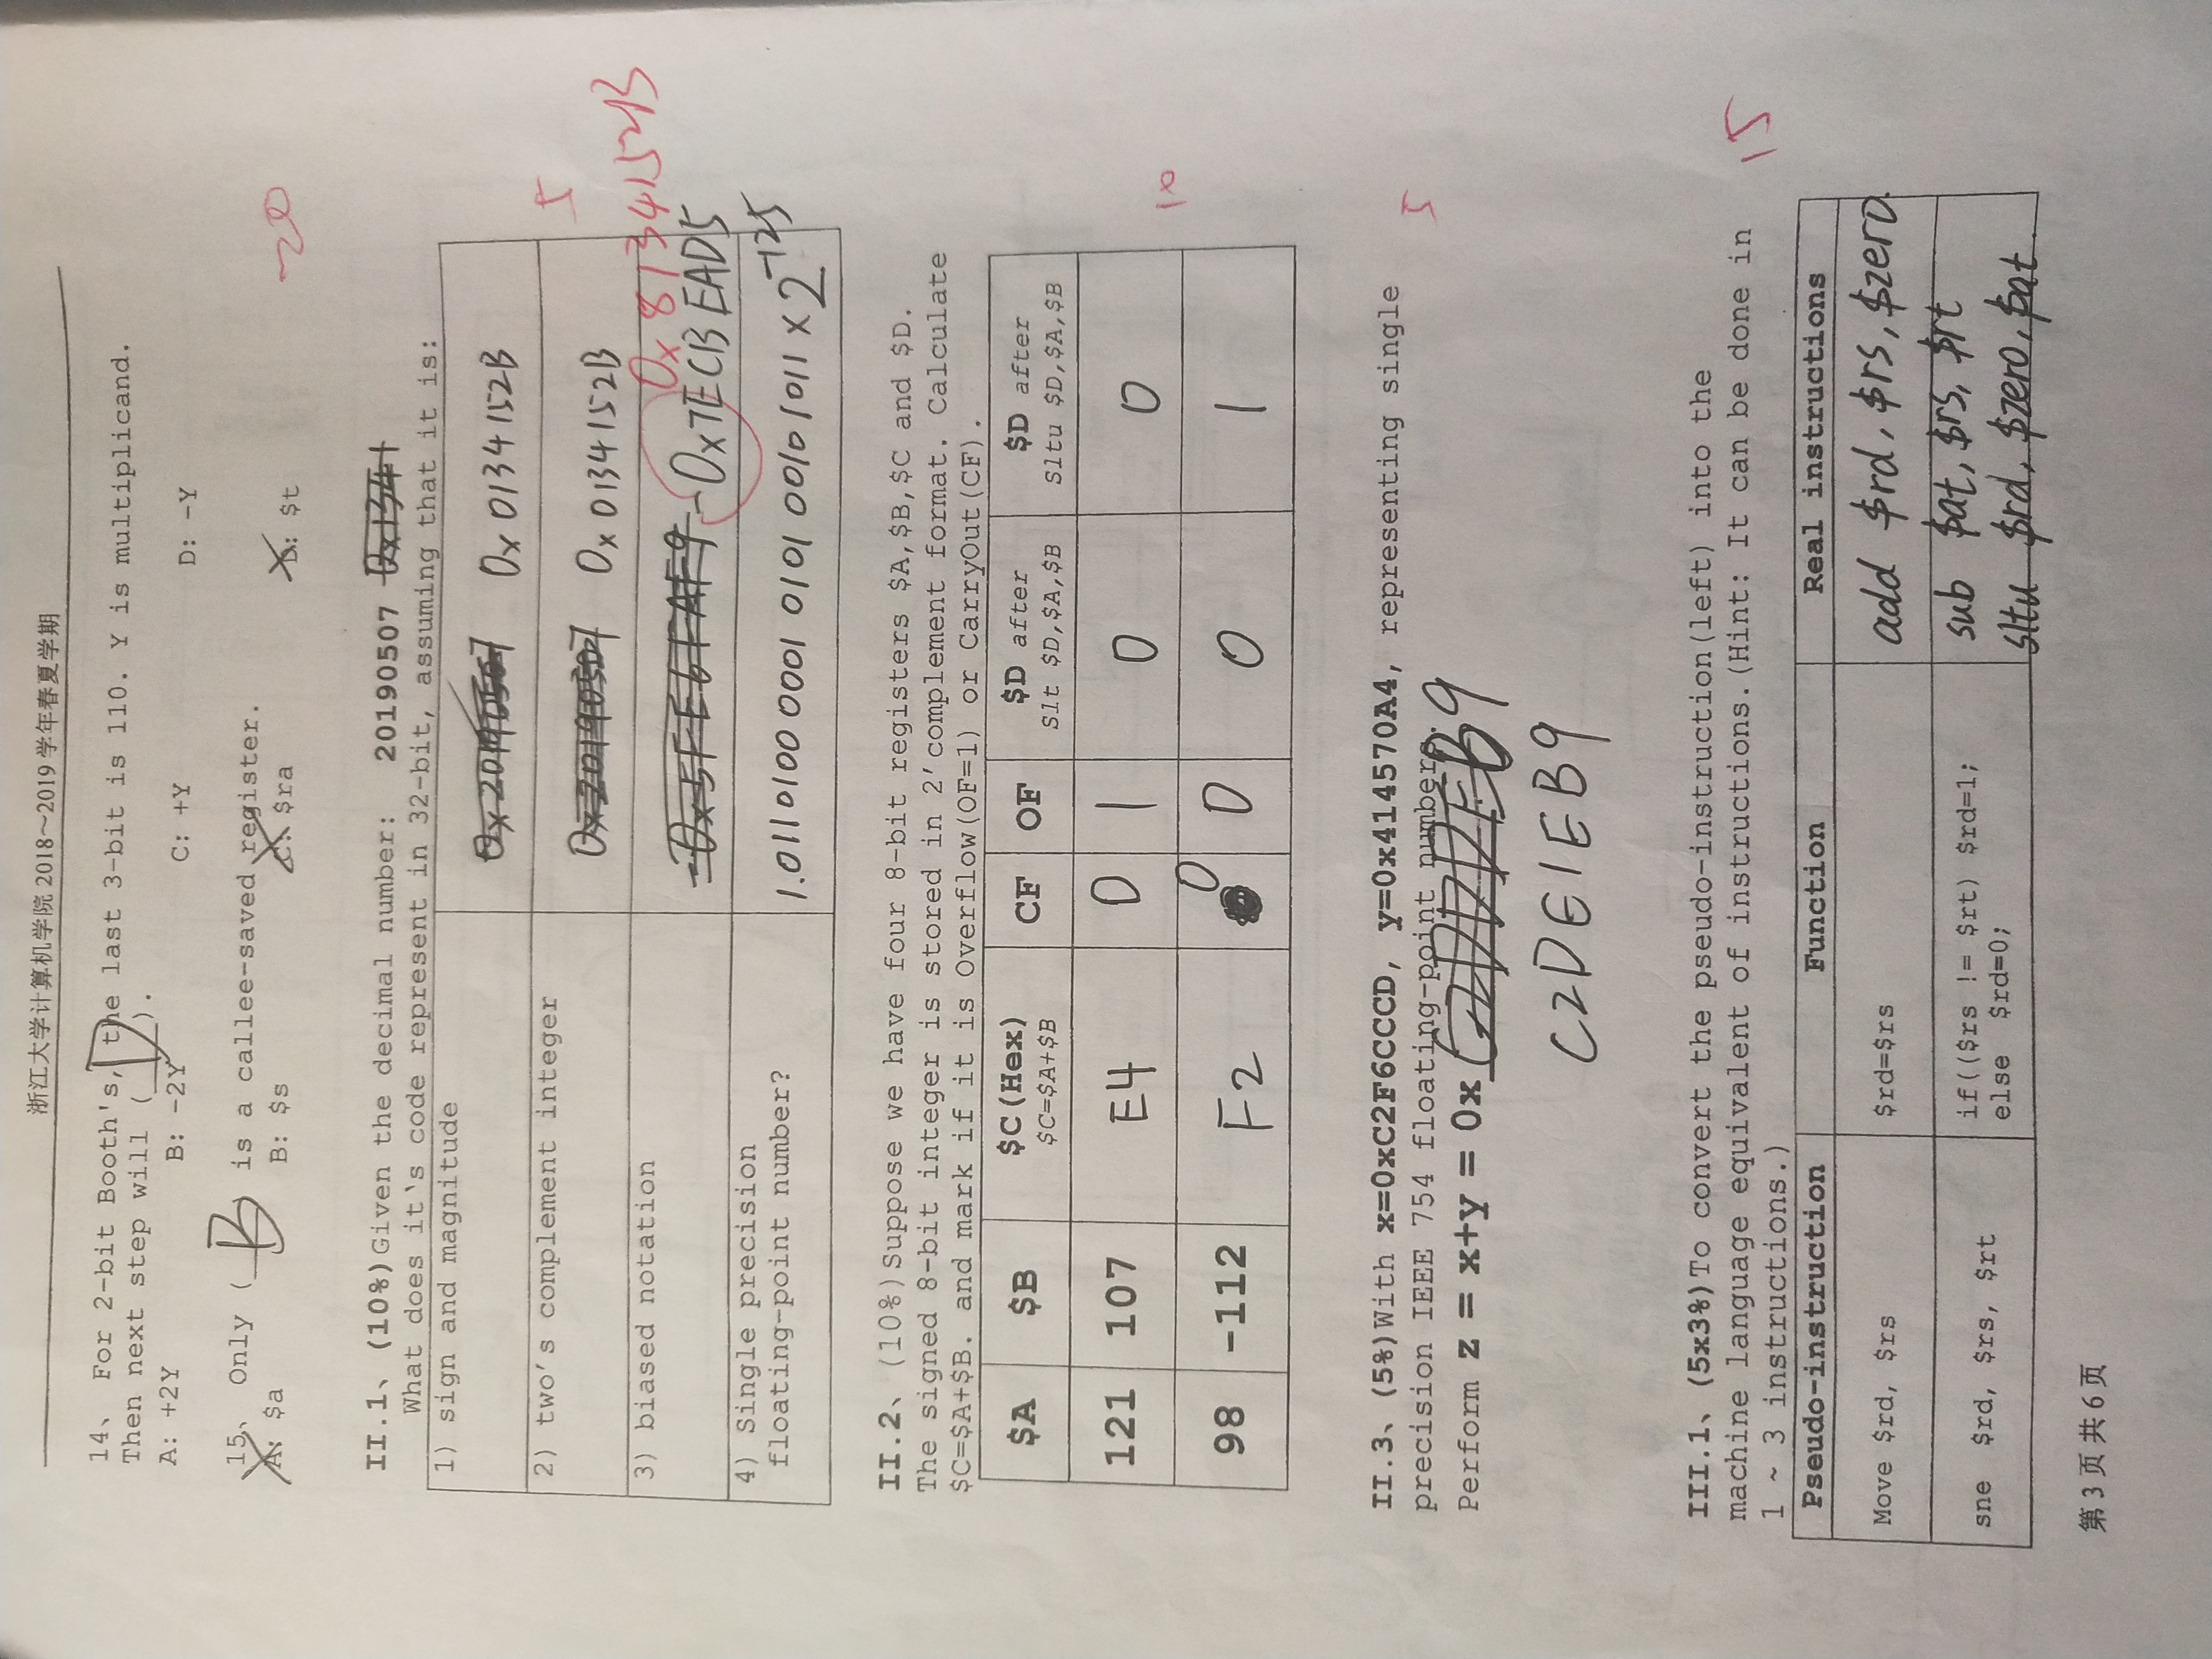 浙江大学计算机学院 2018～2019 学年春夏学期
14、 For 2-bit Booth's, the last 3-bit is 110. Y is multiplicand.
Then next step will (D).
A: +2Y B: -2Y C: +Y D: -Y
15、 Only (B) is a callee-saved register.
A: $a B: $s C: $ra D: $t
-20
II.1、(10%)Given the decimal number: 20190507
What does it's code represent in 32-bit, assuming that it is:
1) sign and magnitude 0x20190507 0x0134152B
2) two's complement integer 0x20190507 0x0134152B
5
3) biased notation -0x5FE6FAF9 -0x7ECBEAD5
0x8134152B
4) Single precision
floating-point number? 1.0110100 0001 0101 00101011 x 2^-125
II.2、(10%)Suppose we have four 8-bit registers $A,$B,$C and $D.
The signed 8-bit integer is stored in 2'complement format. Calculate
$C=$A+$B. and mark if it is Overflow(OF=1) or CarryOut(CF).
$A $B $C(Hex) CF OF $D after $D after
$C=$A+$B Slt $D,$A,$B Sltu $D,$A,$B
121 107 E4 0 1 0 0
10
98 -112 F2 0 0 0 1
II.3、(5%)With x=0xC2F6CCCD, y=0x414570A4, representing single
precision IEEE 754 floating-point numbers.
5
Perform z = x+y = 0x
C2DE1EB9
III.1、(5x3%)To convert the pseudo-instruction(left) into the
machine language equivalent of instructions.(Hint: It can be done in
1 ~ 3 instructions.)
15
Pseudo-instruction Function Real instructions
Move $rd, $rs $rd=$rs add $rd, $rs, $zero.
sne $rd, $rs, $rt if(($rs != $rt) $rd=1; sub $at, $rs, $rt
else $rd=0; sltu $rd, $zero, $at.
第 3 页 共 6 页